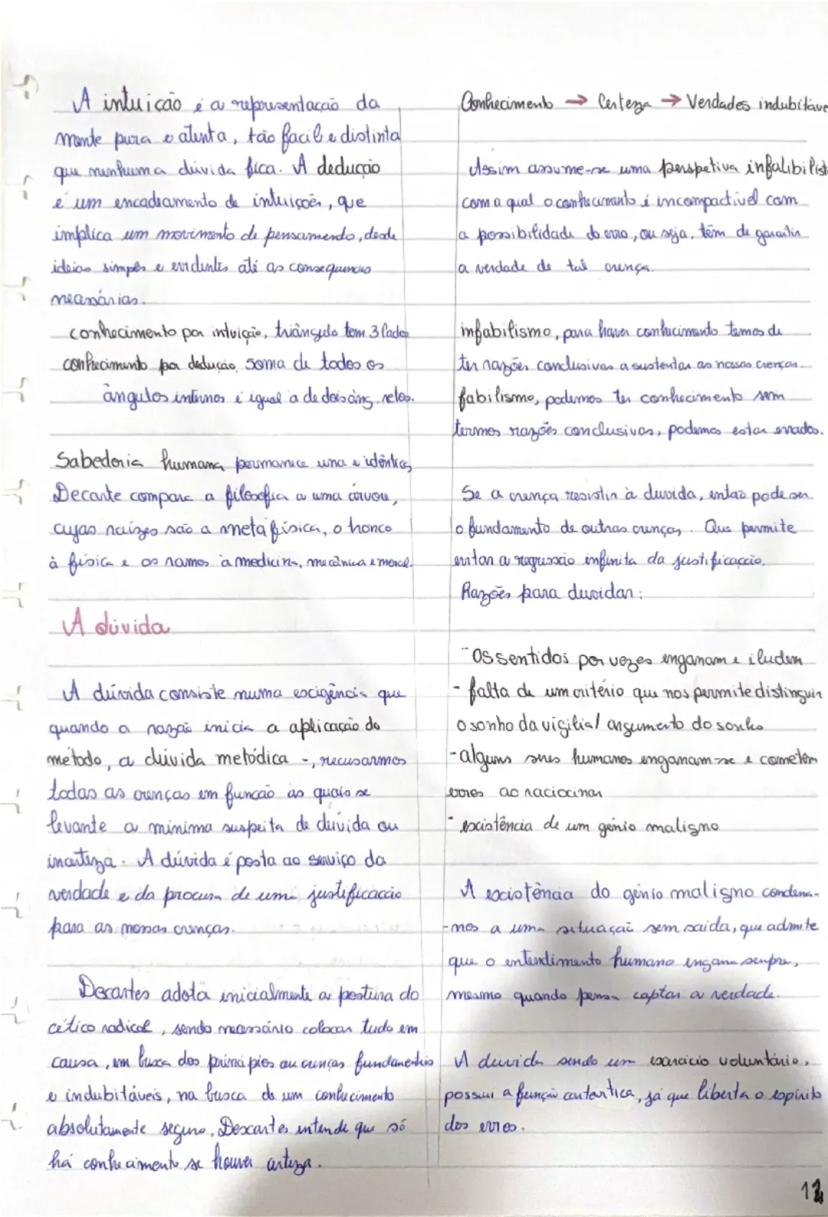 A intuição é a representação da
mente pura e atenta, tão facil e distinta
que nenhuma dúvida fica. A dedução
é um encadeamento de intuições, que
implica um movimento de pensamendo, desde
ideias simples e evidentes até as consequencias
necessárias.
conhecimento por intuição, triângulo tem 3 lados
conhecimento por dedução, soma de todos os
ângulos internos é igual a de dois âng. retos.
Sabedoria humana permanece una e idêntica,
Decarte compara a filosofia a uma árvore,
cujas raízes são a metafísica, o tronco
à física e os ramos à medicina, mecânica e moral.
A dúvida
A dúvida consiste numa exigência que
quando a razão inicia a aplicação do
método, a dúvida metódica -, recusarmos
todas as crenças em função às quais se
levante a minima suspeita de dúvida ou
incerteza. A dúvida é posta ao serviço da
verdade e da procura de uma justificação
para as nossas crenças.
Descartes adota inicialmente a postura do
cético radical, sendo necessário colocar tudo em
causa, em busca dos principios ou crenças fundamentais
e indubitáveis, na busca de um conhecimento
absolutamente seguro, Descartes entende que só
há conhecimento se houver certeza.
Conhecimento → Certeza → Verdades indubitáve
Assim assume-se uma perspetiva infalibilist
com a qual o conhecimento é incompactível com
a possibilidade do erro, ou seja, têm de garantir
a verdade de tal crença.
infabilismo, para haver conhecimento temos de
ter razões conclusivas a sustentar as nossas crenças.
fabilismo, podemos ter conhecimento sem
termos razões conclusivas, podemos estar errados.
Se a crença resistir à duvida, então pode ser
o fundamento de outras crenças. Que permite
evitar a regressão infinita da justificação.
Razões para duvidar:
- Os sentidos por vezes enganam e iludem
- falta de um critério que nos permite distinguir
o sonho da vigília/ argumento do sonho
- alguns seres humanos enganam-se e cometem
erros ao raciocinar
- existência de um génio maligno
A existência do génio maligno condena-
-nos a uma situação sem saida, que admite
que o entendimento humano engana sempre,
mesmo quando pensa captar a verdade.
A duvida sendo um exercício voluntário,
possui a função catártica, já que liberta o espírito
dos erros.